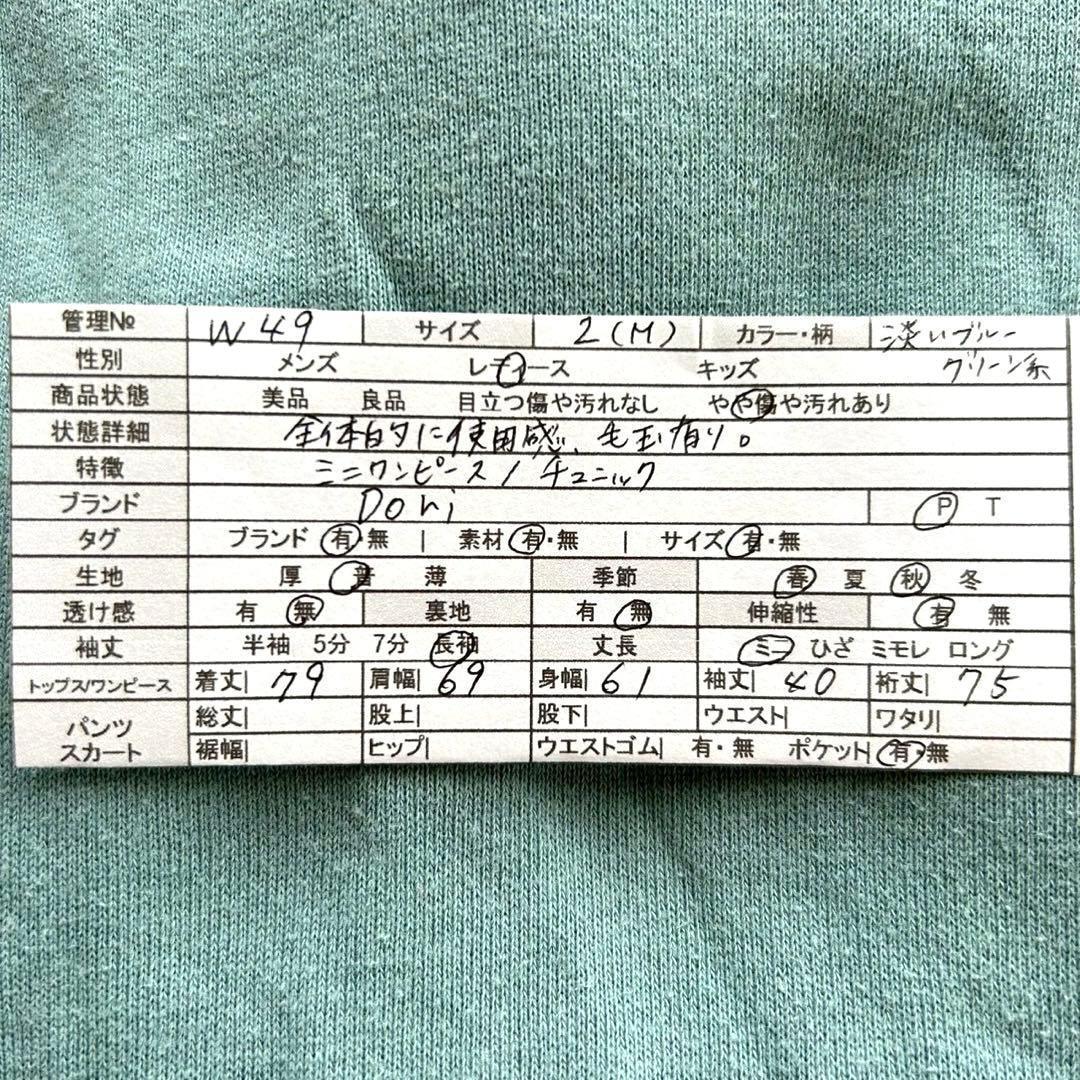 管理№ W49 サイズ 2(M) カラー・柄 淡いブルー
グリーン系
性別 メンズ レディース キッズ
商品状態 美品 良品 目立つ傷や汚れなし やや傷や汚れあり
状態詳細 全体的に使用感、毛玉有り。
特徴 ミニワンピース/チュニック
ブランド Doni P T
タグ ブランド 有・無 | 素材 有・無 | サイズ 有・無
生地 厚 普 薄 季節 春 夏 秋 冬
透け感 有 無 裏地 有 無 伸縮性 有 無
袖丈 半袖 5分 7分 長袖 丈長 ミニ ひざ ミモレ ロング
トップス/ワンピース 着丈| 79 肩幅| 69 身幅| 61 袖丈| 40 裄丈| 75
パンツ スカート 総丈| 股上| 股下| ウエスト| ワタリ|
裾幅| ヒップ| ウエストゴム| 有・無 ポケット| 有・無